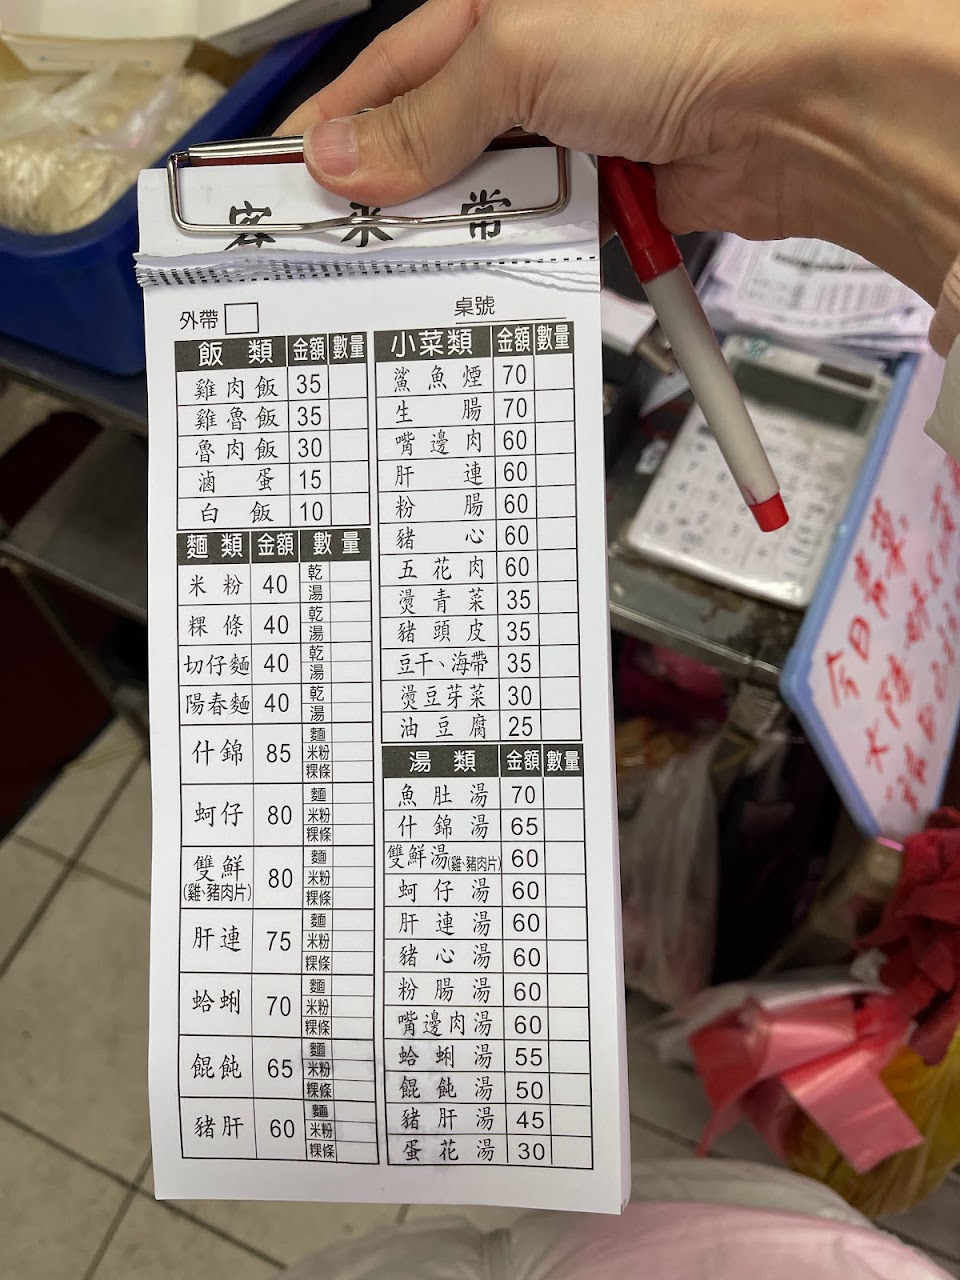 客來常
外帶 桌號
飯類 金額 數量
雞肉飯 35
雞魯飯 35
魯肉飯 30
滷蛋 15
白飯 10
麵類 金額 數量
米粉 40 乾 湯
粿條 40 乾 湯
切仔麵 40 乾 湯
陽春麵 40 乾 湯
什錦 85 麵 米粉 粿條
蚵仔 80 麵 米粉 粿條
雙鮮(雞、豬肉片) 80 麵 米粉 粿條
肝連 75 麵 米粉 粿條
蛤蜊 70 麵 米粉 粿條
餛飩 65 麵 米粉 粿條
豬肝 60 麵 米粉 粿條
小菜類 金額 數量
鯊魚煙 70
生腸 70
嘴邊肉 60
肝連 60
粉腸 60
豬心 60
五花肉 60
燙青菜 35
豬頭皮 35
豆干、海帶 35
燙豆芽菜 30
油豆腐 25
湯類 金額 數量
魚肚湯 70
什錦湯 65
雙鮮湯(雞、豬肉片) 60
蚵仔湯 60
肝連湯 60
豬心湯 60
粉腸湯 60
嘴邊肉湯 60
蛤蜊湯 55
餛飩湯 50
豬肝湯 45
蛋花湯 30
今日青菜